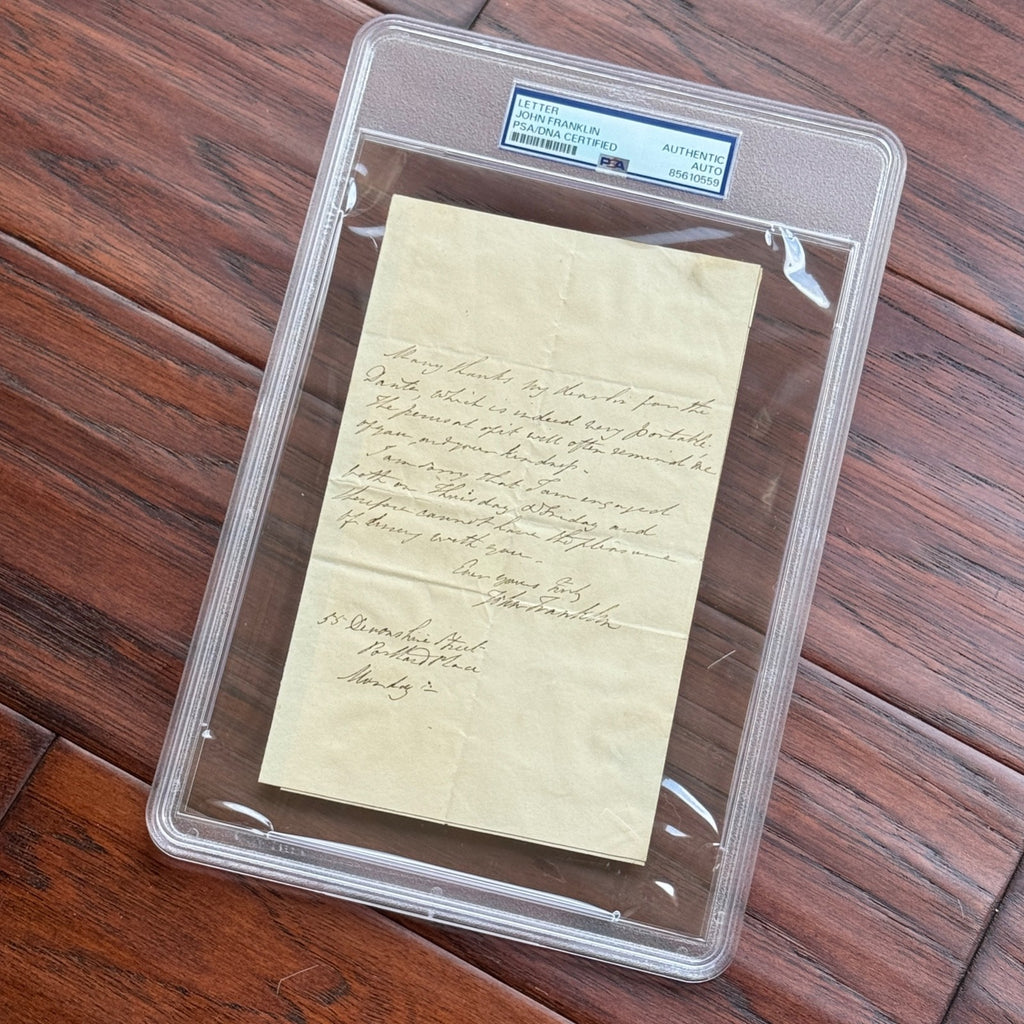 LETTER
JOHN FRANKLIN
PSA/DNA CERTIFIED
AUTHENTIC
AUTO
85610559
PSA
Many thanks my dear Sir for the
Dante, which is indeed very portable.
The perusal of it will often remind me
of you, and your kindness.
I am sorry that I am engaged
both on Thursday & Friday and
therefore cannot have the pleasure
of dining with you
Ever yours truly
John Franklin
55 Devonshire Street
Portland Place
Monday